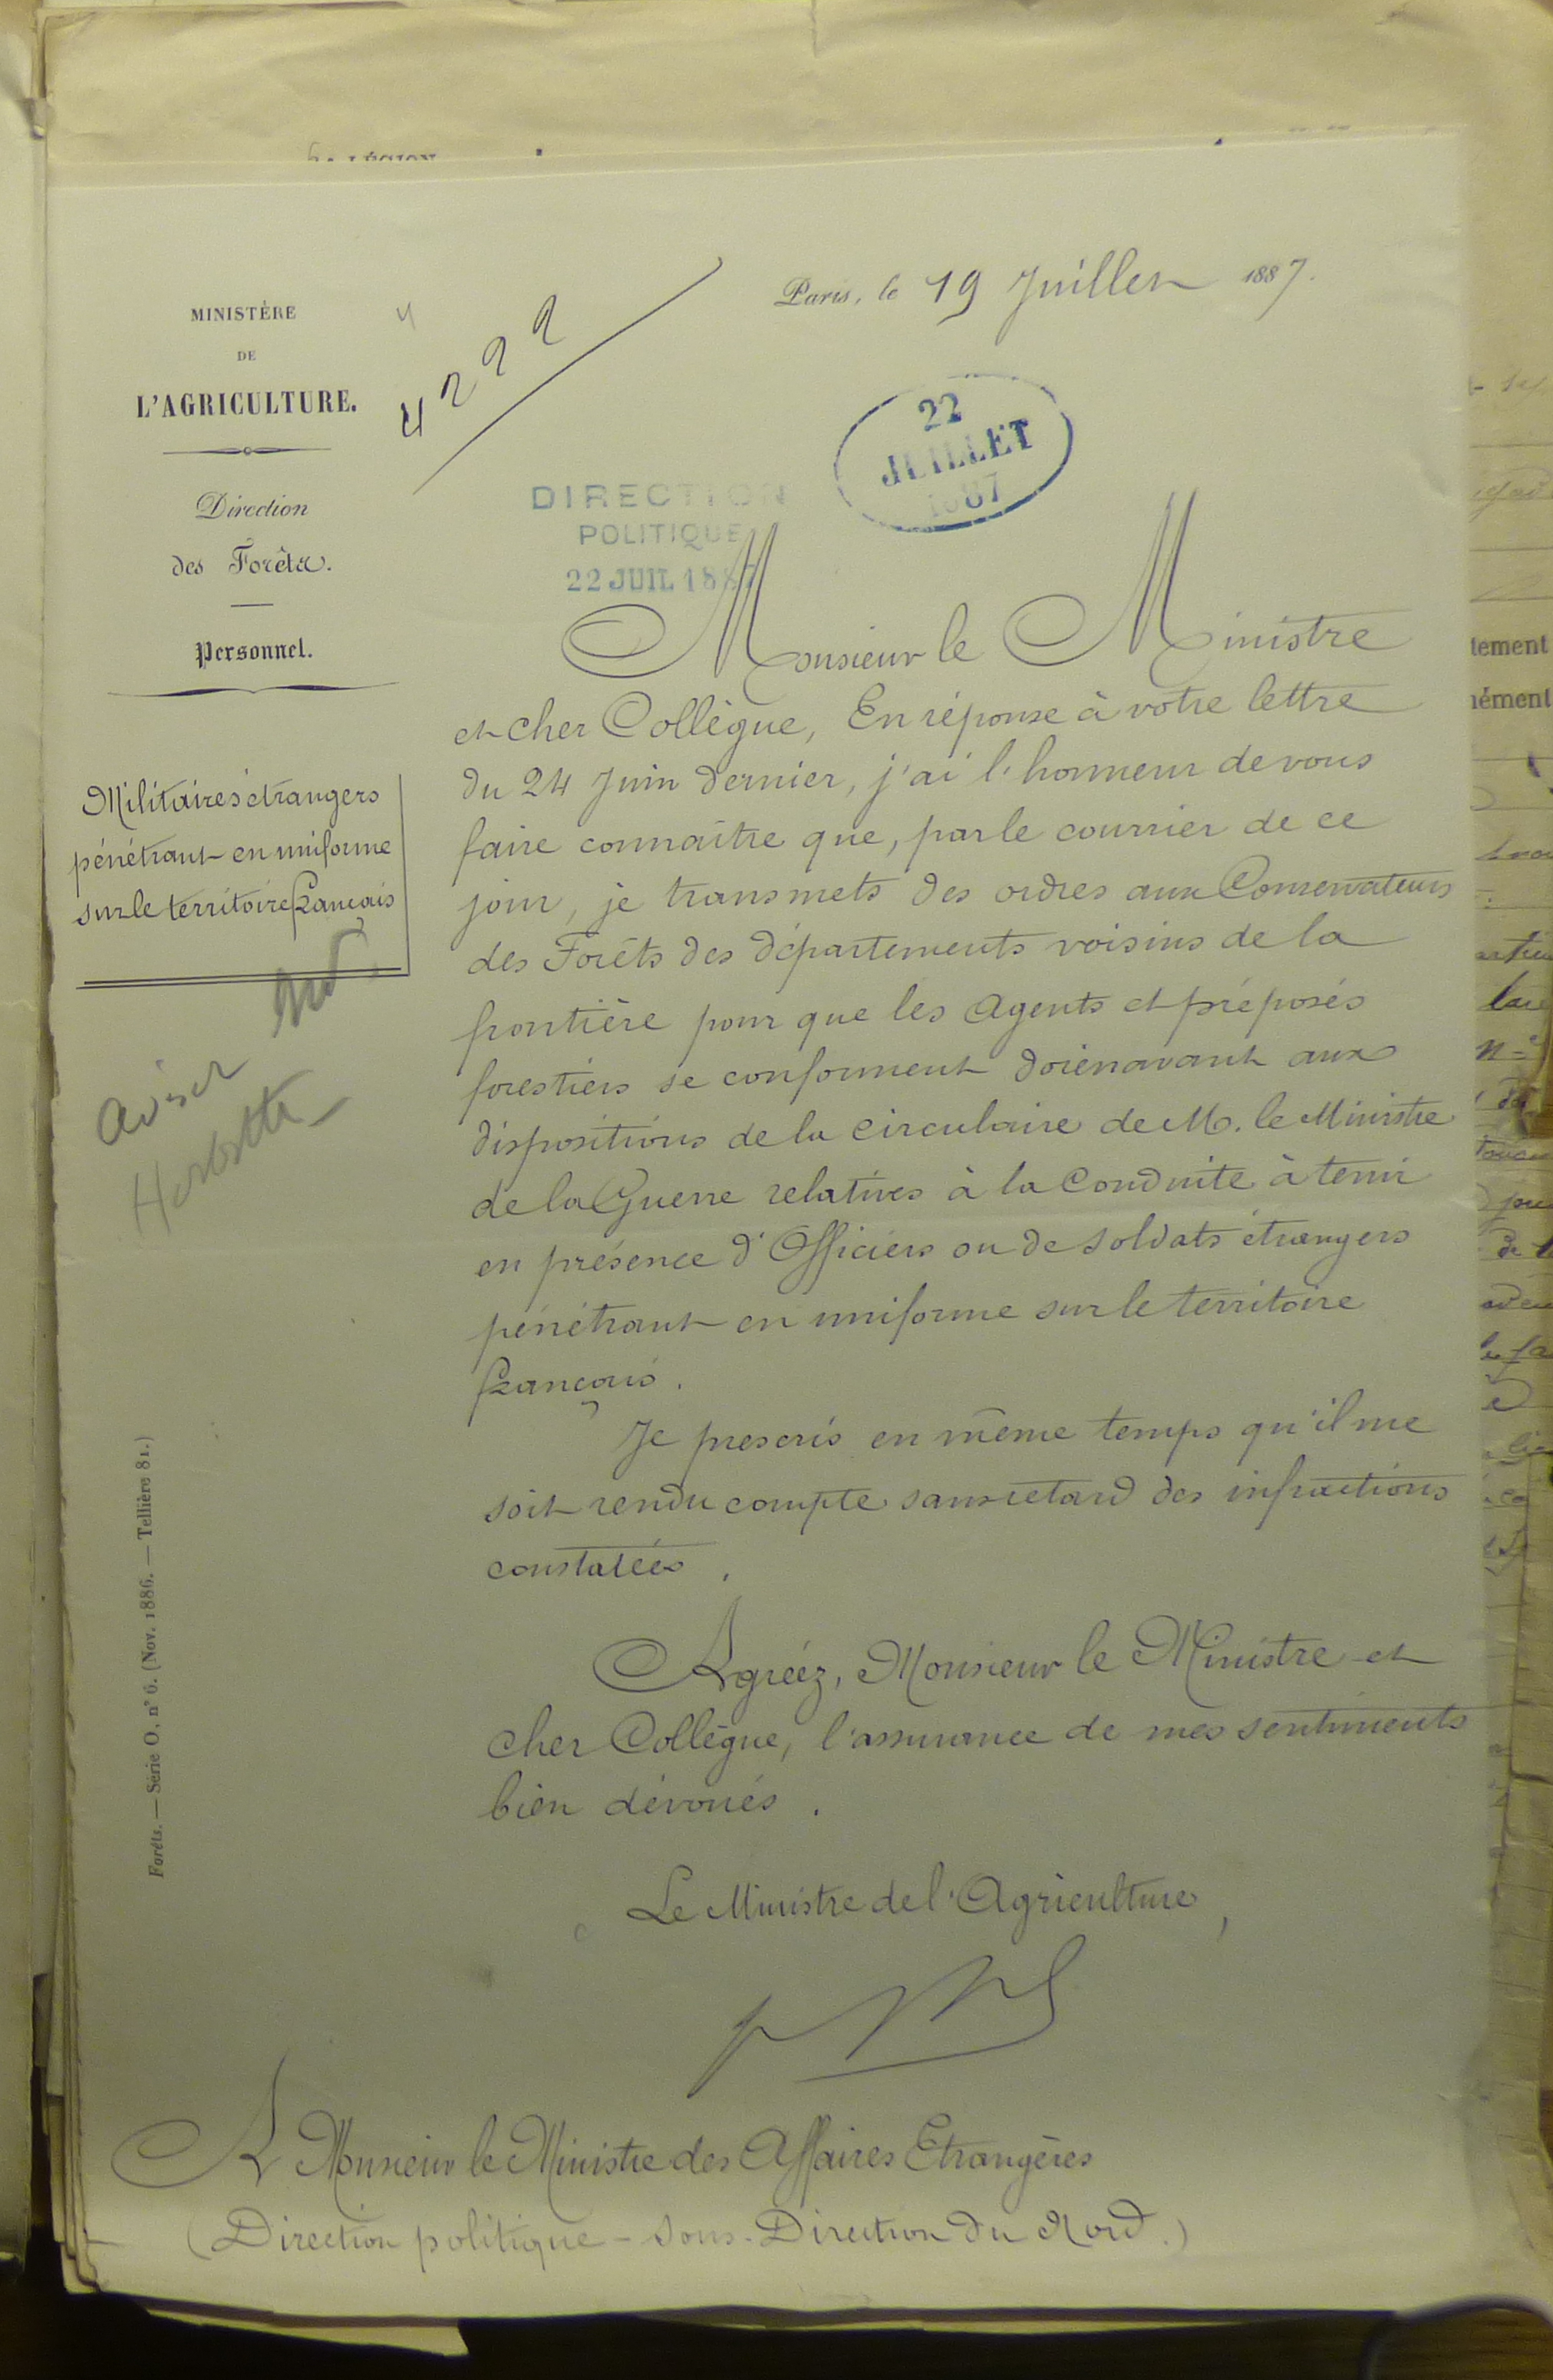 MINISTÈRE
DE
L'AGRICULTURE.
Direction
des Forêts.
Personnel.
4222
Paris, le 19 Juillet 1887.
22
JUILLET
1887
DIRECTION
POLITIQUE
22 JUIL 1887
Militaires étrangers
pénétrant en uniforme
sur le territoire français
Nord.
aviser
Herbette
Monsieur le Ministre
et cher Collègue, En réponse à votre lettre
du 24 Juin dernier, j'ai l'honneur de vous
faire connaître que, par le courrier de ce
jour, je transmets des ordres aux Conservateurs
des Forêts des départements voisins de la
frontière pour que les Agents et préposés
forestiers se conforment dorénavant aux
dispositions de la circulaire de M. le Ministre
de la Guerre relatives à la conduite à tenir
en présence d'Officiers ou de soldats étrangers
pénétrant en uniforme sur le territoire
français.
Je prescris en même temps qu'il me
soit rendu compte sans retard des infractions
constatées.
Agréez, Monsieur le Ministre et
cher Collègue, l'assurance de mes sentiments
bien dévoués.
Le Ministre de l'Agriculture,
A Monsieur le Ministre des Affaires Etrangères
(Direction politique - Sous-Direction du Nord.)
Forêts. — Série O, n° 6. (Nov. 1886. — Tellière 81.)